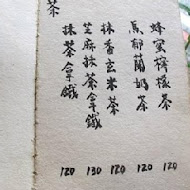 蜂蜜檸檬茶 120
馬郁蘭奶茶 120
抹香玄米茶 120
芝麻抹茶拿鐵 130
抹茶拿鐵 120
茶